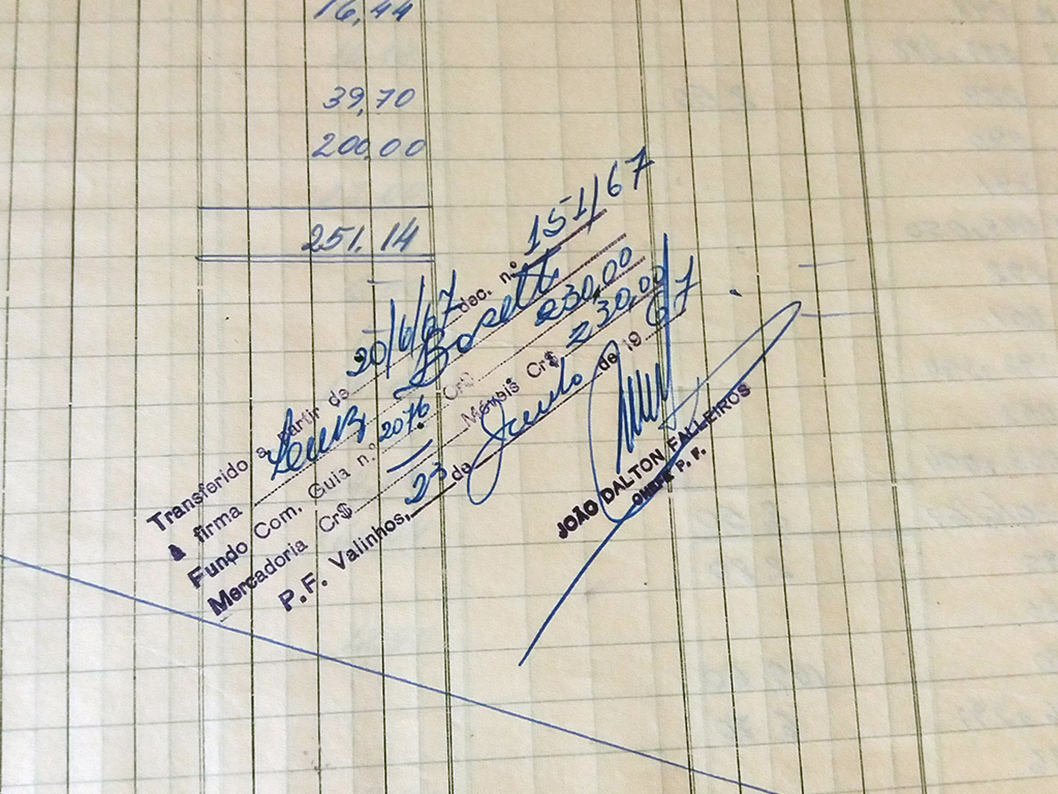 39,70
200,00
251.14
Transferido a partir de 20/6/67 dec. n.º 151/67
à firma Bosetti
Fundo Com. Guia n.º 2076 Cr$ 230,00
Mercadoria Cr$ — Móveis Cr$ 230,00
P.F. Valinhos, 23 de Junho de 1967
JOÃO DALTON FALLEIROS
CHEFE P. F.